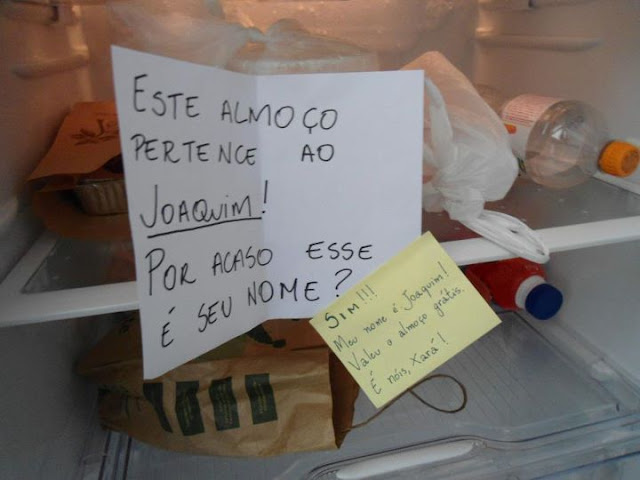 ESTE ALMOÇO
PERTENCE AO
JOAQUIM!
POR ACASO ESSE
É SEU NOME?
SIM!!!
Meu nome é Joaquim!
Valeu o almoço grátis.
É nóis, Xará!